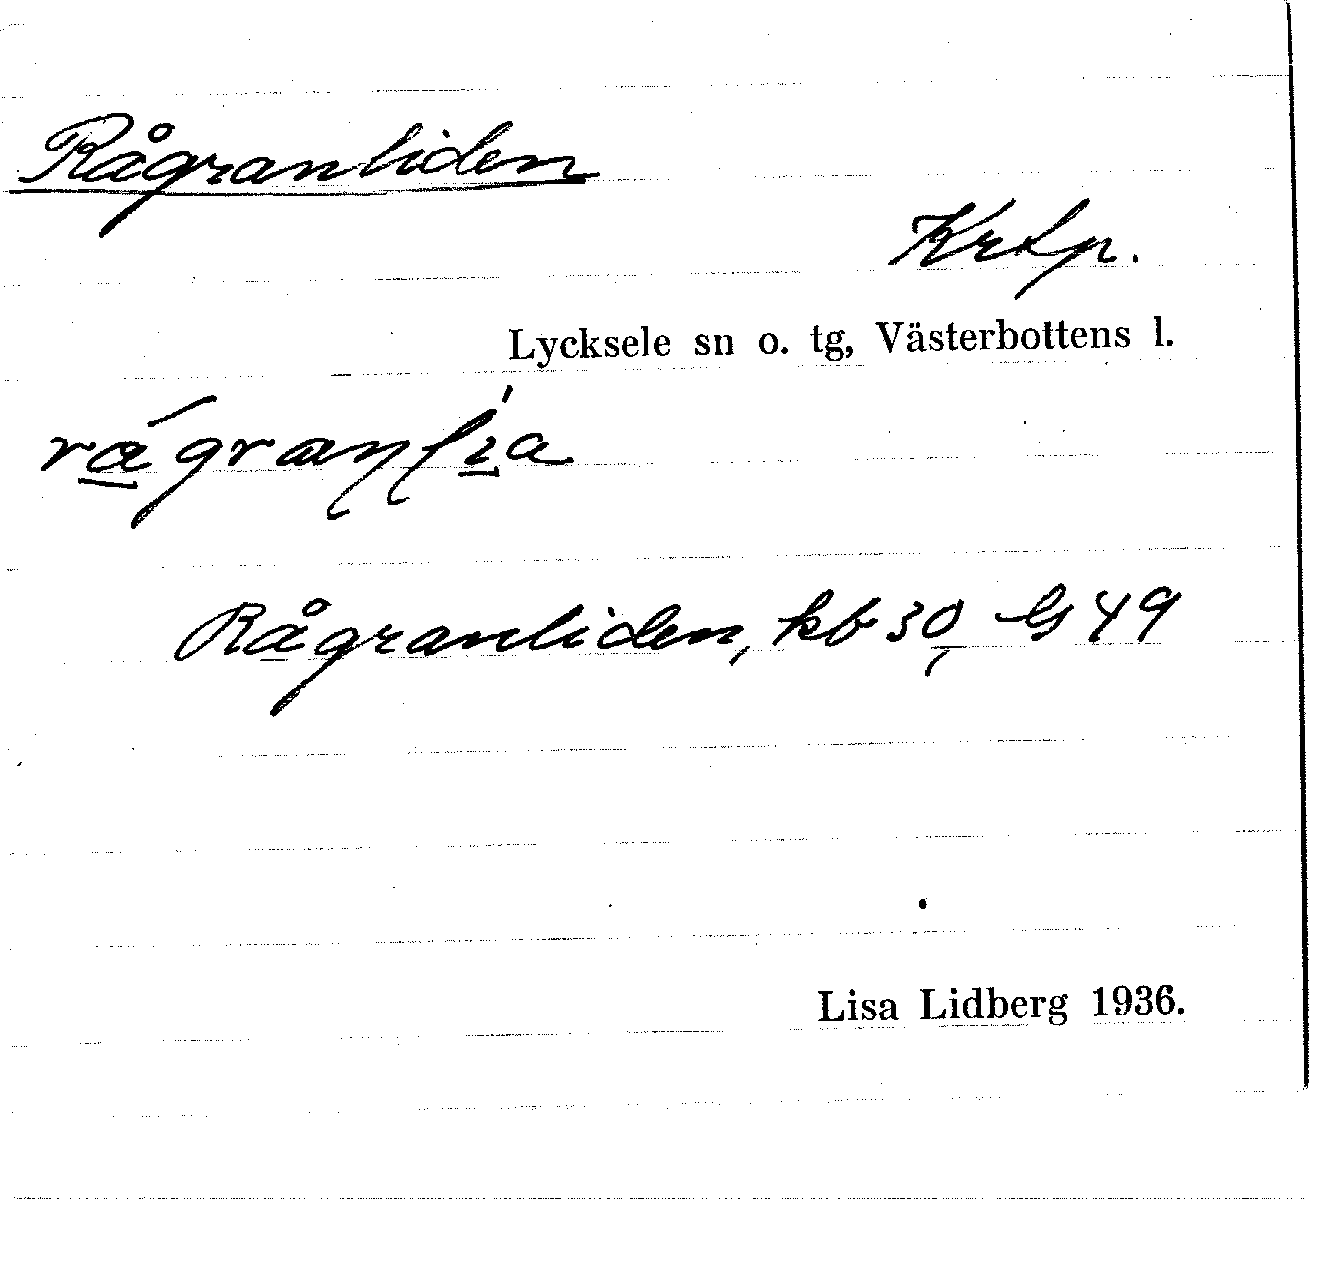 Rågranliden
Krtp.
Lycksele sn o. tg, Västerbottens l.
Rågranliden, kb 30, G 49
Lisa Lidberg 1936.